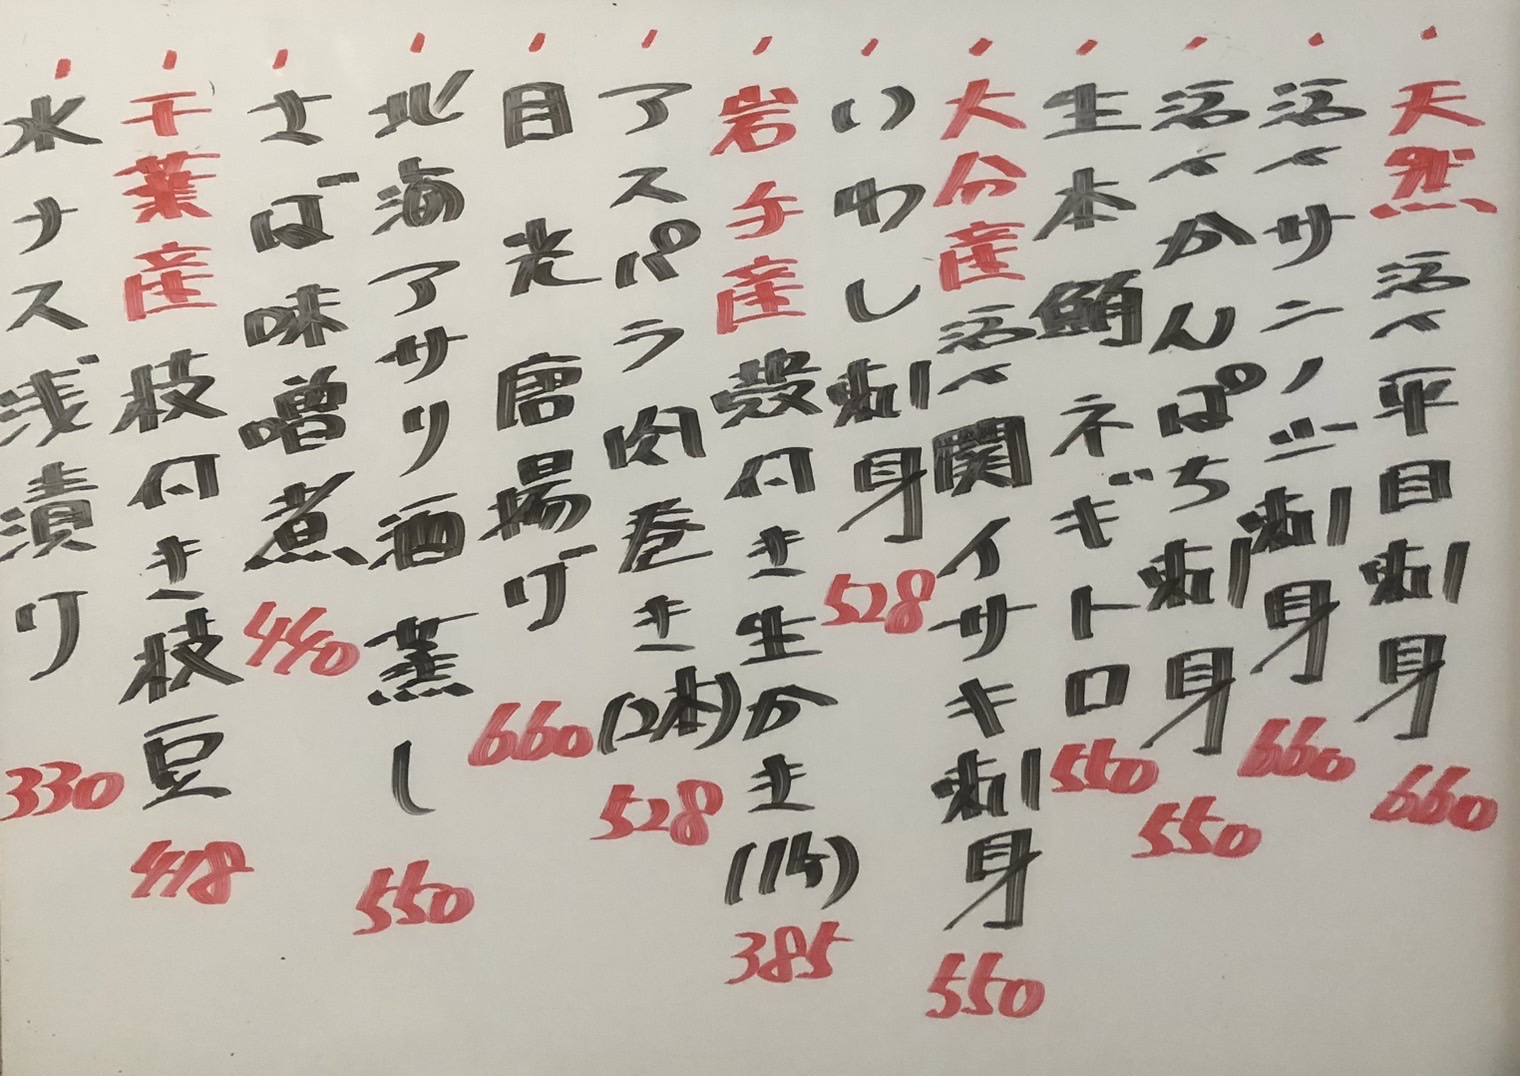 ・天然活〆平目刺身 660
・活〆サンノジ刺身 660
・活〆かんぱち刺身 550
・生本鮪ネギトロ 550
・大分産活〆関イサキ刺身 550
・いわし刺身 528
・岩手産殻付き生かき(1ケ) 385
・アスパラ肉巻き(2本) 528
・目光唐揚げ 660
・北海アサリ酒蒸し 550
・さば味噌煮 440
・千葉産枝付き枝豆 418
・水ナス浅漬り 330